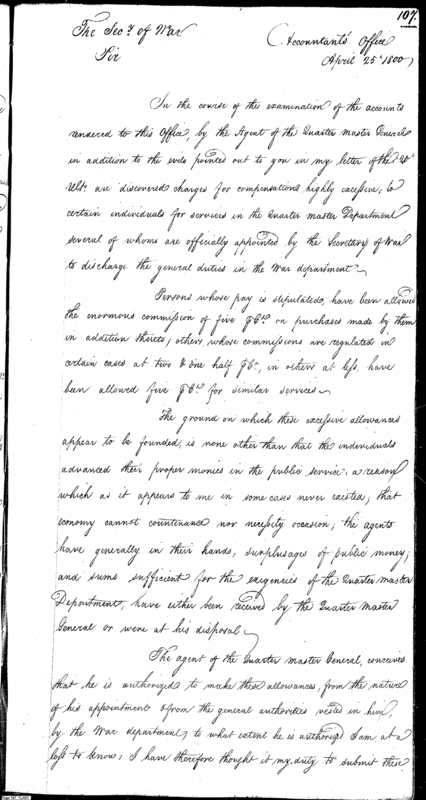 107.
The Secy. of War
Accountant's Office
Sir
April 25th 1800
In the course of the examination of the accounts
rendered to this Office, by the Agent of the Quarter Master General
in addition to the evils pointed out to you in my letter of the
Ulto. are discovered charges for compensations highly excessive, to
certain individuals for services in the Quarter master Department
several of whom are officially appointed by the Secretary of War
to discharge the general duties in the War department
Persons whose pay is stipulated, have been allowed
the enormous commission of five P Ct. on purchases made by them
in addition thereto; others, whose commissions are regulated in
certain cases at two & one half P Ct., in others at less, have
been allowed five P Ct. for similar services
The ground on which these excessive allowances
appear to be founded, is none other than that the individuals
advanced their proper monies in the public service; a reason
which as it appears to me in some cases never existed; that
economy cannot countenance nor necessity occasion; the agents
have generally in their hands, surplusages of public money;
and sums sufficient for the exigencies of the Quarter master
Department, have either been received by the Quarter Master
General or were at his disposal
The agent of the Quarter Master General, conceives
that he is authorized to make these allowances, from the nature
of his appointment & from the general authorities vested in him,
by the War department; to what extent he is authorized I am at a
loss to know; I have therefore thought it my duty to submit these